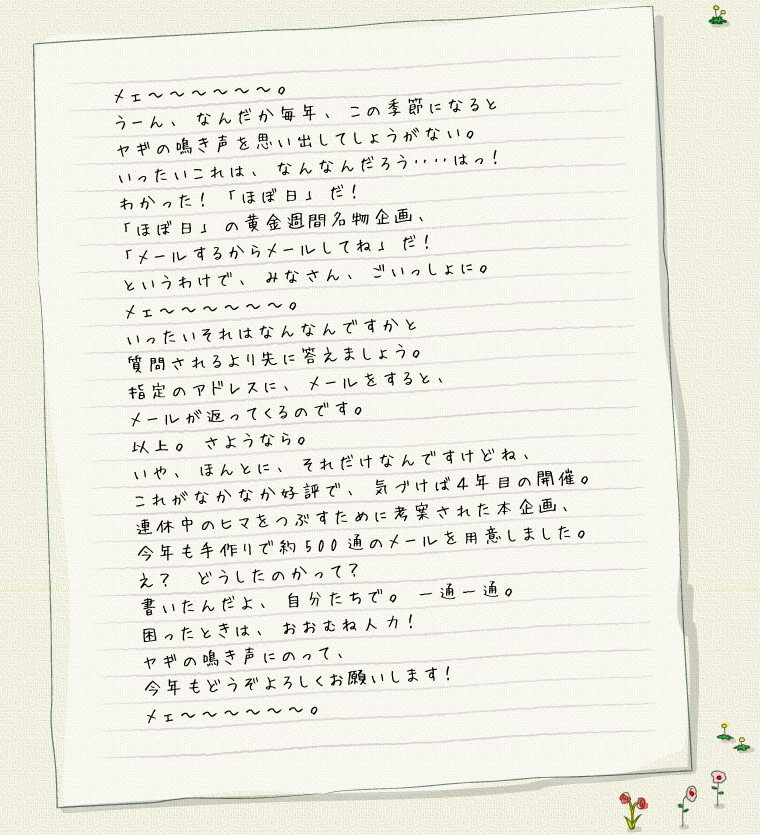 メェ〜〜〜〜〜〜。
うーん、なんだか毎年、この季節になると
ヤギの鳴き声を思い出してしょうがない。
いったいこれは、なんなんだろう‥‥はっ！
わかった！「ほぼ日」だ！
「ほぼ日」の黄金週間名物企画、
「メールするからメールしてね」だ！
というわけで、みなさん、ごいっしょに。
メェ〜〜〜〜〜〜。
いったいそれはなんなんですかと
質問されるより先に答えましょう。
指定のアドレスに、メールをすると、
メールが返ってくるのです。
以上。さようなら。
いや、ほんとに、それだけなんですけどね、
これがなかなか好評で、気づけば４年目の開催。
連休中のヒマをつぶすために考案された本企画、
今年も手作りで約５００通のメールを用意しました。
え？　どうしたのかって？
書いたんだよ、自分たちで。一通一通。
困ったときは、おおむね人力！
ヤギの鳴き声にのって、
今年もどうぞよろしくお願いします！
メェ〜〜〜〜〜〜。